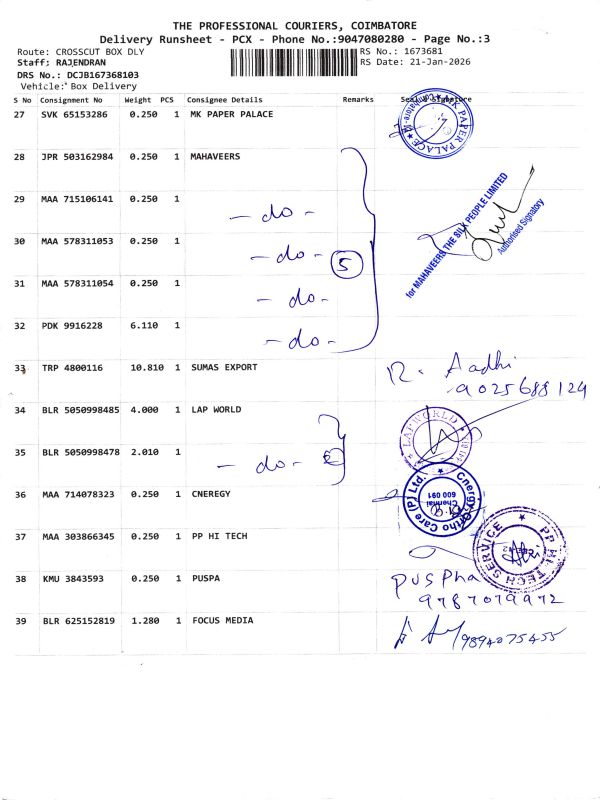 THE PROFESSIONAL COURIERS, COIMBATORE
Delivery Runsheet - PCX - Phone No.:9047080280 - Page No.:3
Route: CROSSCUT BOX DLY RS No.: 1673681
Staff: RAJENDRAN RS Date: 21-Jan-2026
DRS No.: DCJB167368103
Vehicle: Box Delivery
S No Consignment No Weight PCS Consignee Details Remarks Seal & Signature
27 SVK 65153286 0.250 1 MK PAPER PALACE
MK PAPER PALACE
28 JPR 503162984 0.250 1 MAHAVEERS
29 MAA 715106141 0.250 1
- do -
30 MAA 578311053 0.250 1
- do - 5
31 MAA 578311054 0.250 1
- do -
32 PDK 9916228 6.110 1
- do -
for MAHAVEERS THE SILK PEOPLE LIMITED
Authorised Signatory
33 TRP 4800116 10.810 1 SUMAS EXPORT
R. Aadhi
9025688129
34 BLR 5050998485 4.000 1 LAP WORLD
LAPWORLD
35 BLR 5050998478 2.010 1
- do -
36 MAA 714078323 0.250 1 CNEREGY
Cnergy Ortho Care (P) Ltd.
Chennai
600 091
37 MAA 303866345 0.250 1 PP HI TECH
PP HI-TECH SERVICE
38 KMU 3843593 0.250 1 PUSPA
Puspha
9787079972
39 BLR 625152819 1.280 1 FOCUS MEDIA
9894075455